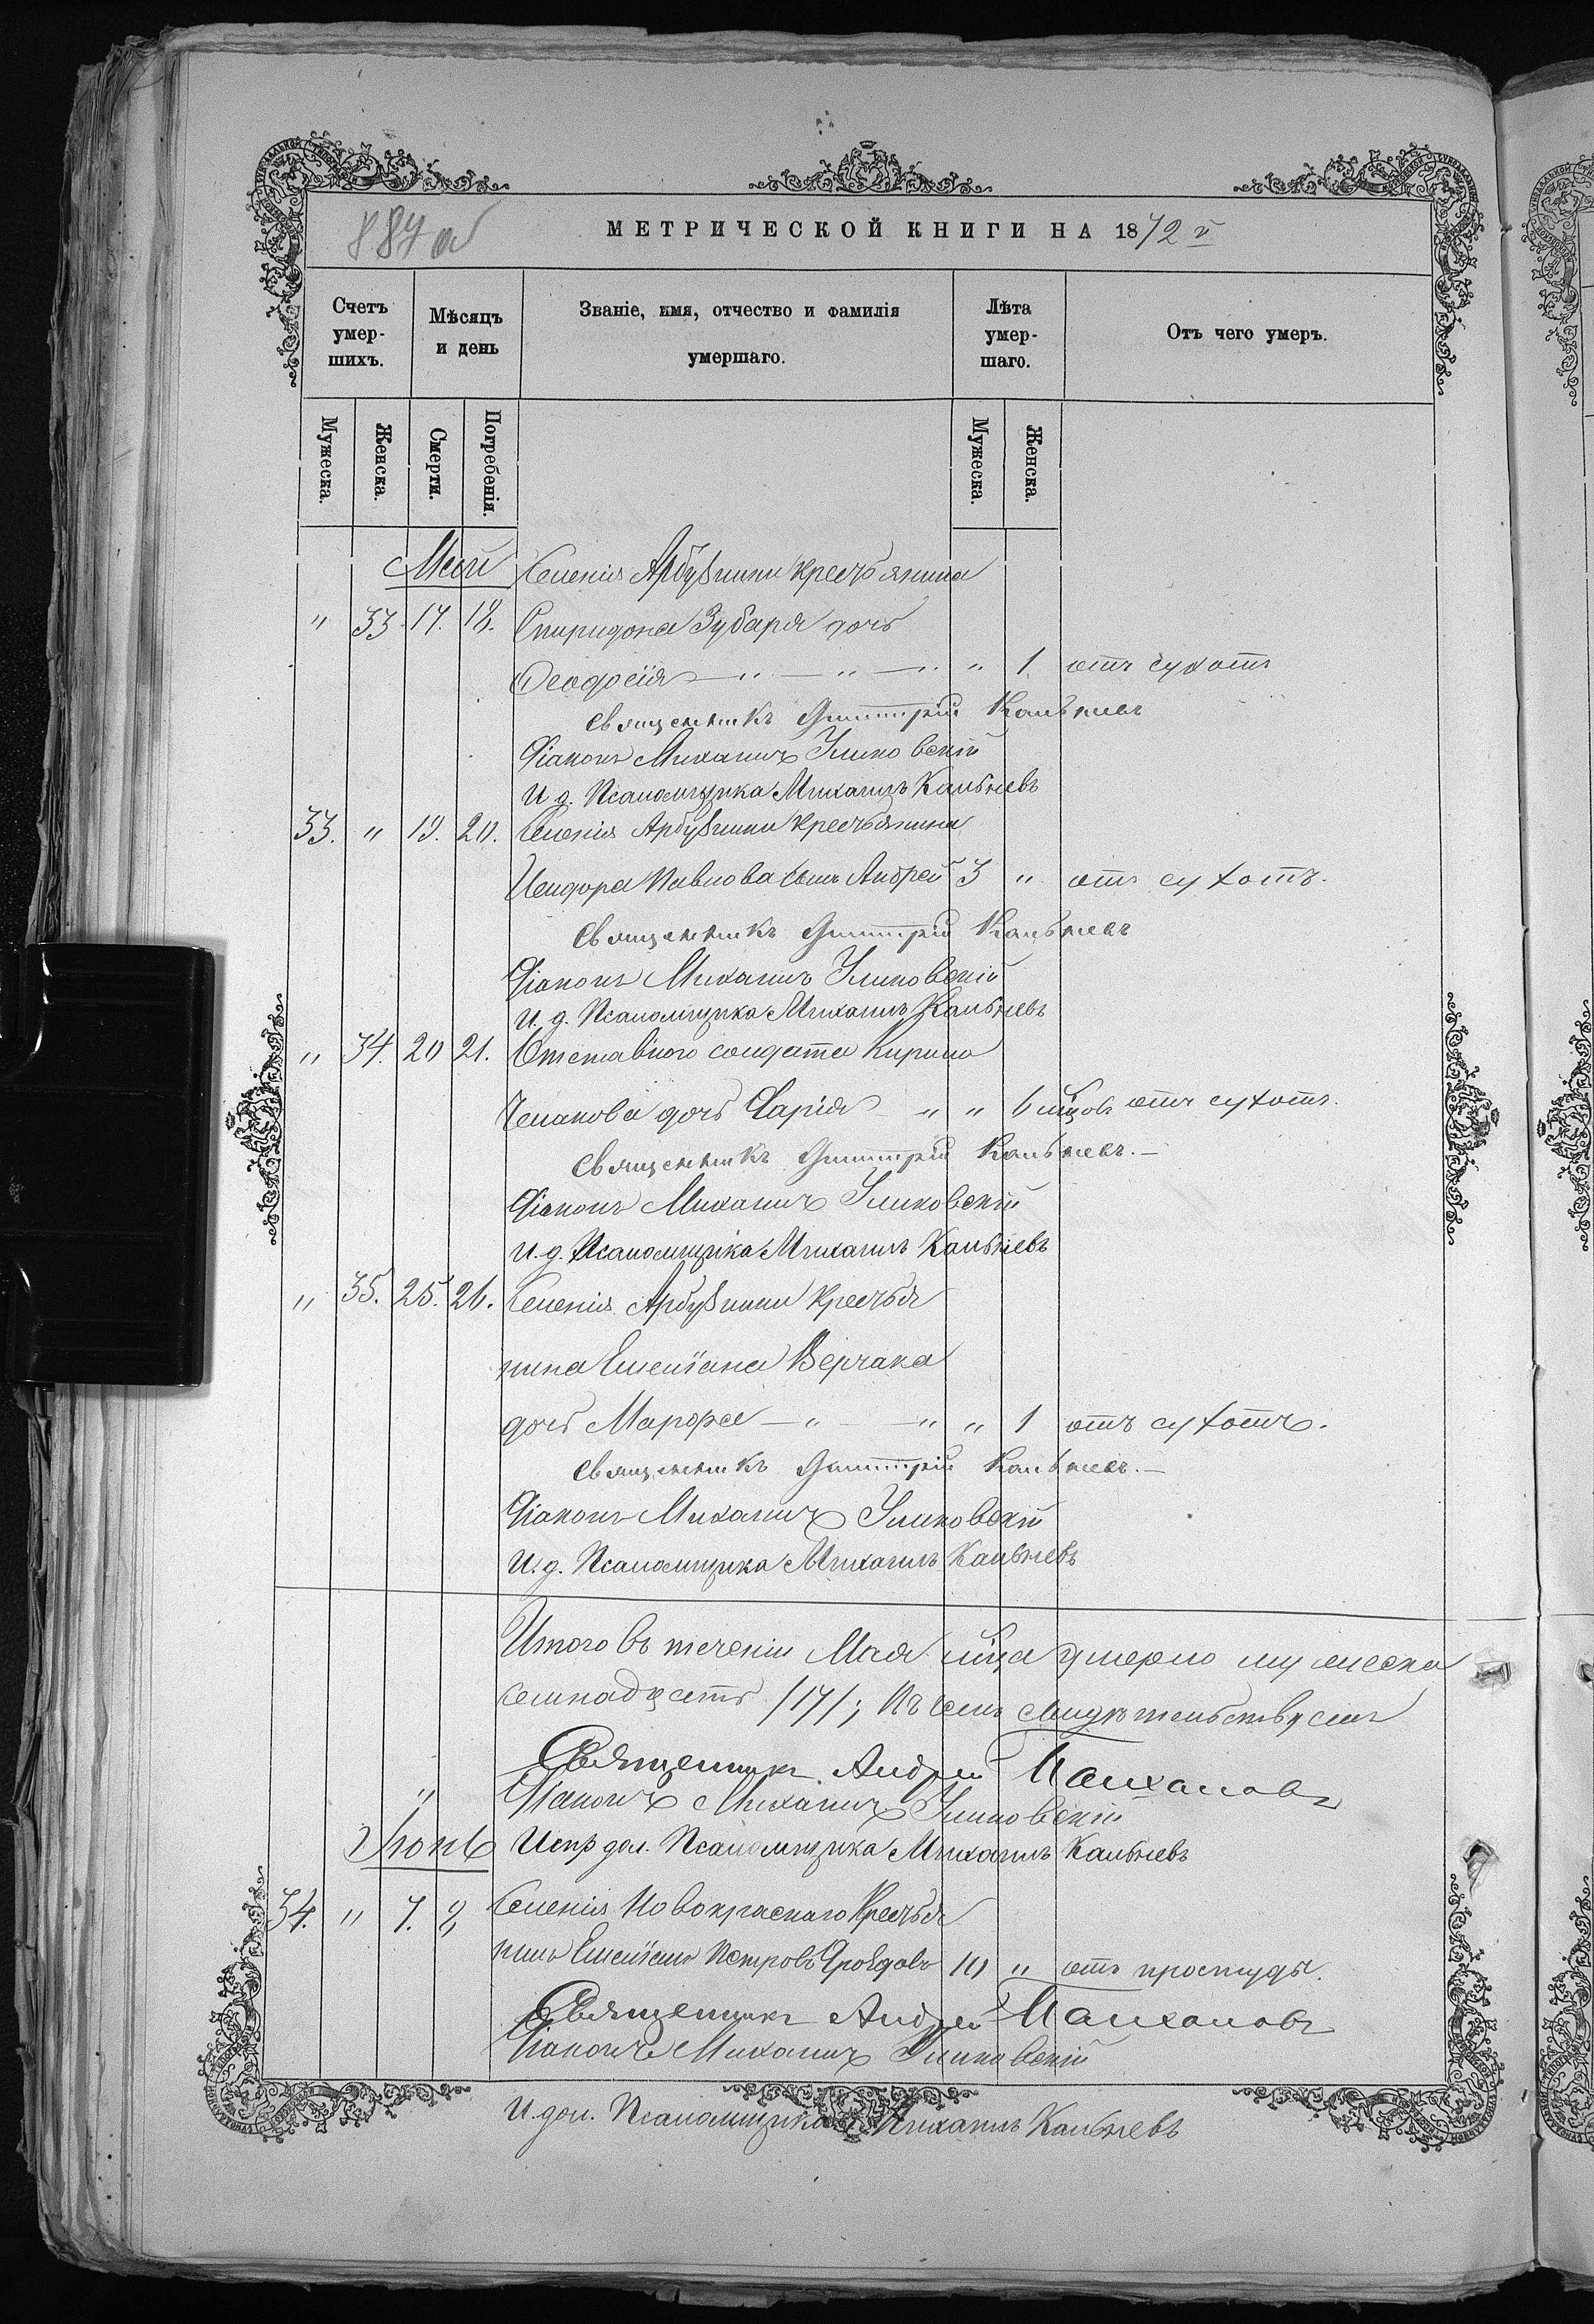 887 об
МЕТРИЧЕСКОЙ КНИГИ НА 1872 й
Счетъ умер-шихъ.
Мѣсяцъ и день
Званіе, имя, отчество и фамилія умершаго.
Лѣта умер-шаго.
Отъ чего умеръ.
Мужеска.
Женска.
Смерти.
Погребенія.
Мужеска.
Женска.
Май Селенія Арбузинки крестьянина
" 33 17. 18. Спиридона Зубаря дочь
Феодосія — " — " — " " 1 отъ сухотъ
Священникъ Димитрій Кальневъ
Діаконъ Михаилъ Уликовскій
И. д. Псаломщика Михаилъ Кальневъ
33. " 19. 20. Селенія Арбузинки крестьянина
Исидора Павлова сынъ Андрей 3 " отъ сухотъ.
Священникъ Димитрій Кальневъ
Діаконъ Михаилъ Уликовскій
И. д. Псаломщика Михаилъ Кальневъ
" 34. 20 21. Отставного солдата Кирила
дочь Дарія " " 6 мцов отъ сухотъ.
Священникъ Димитрій Кальневъ. —
Діаконъ Михаилъ Уликовскій
И. д. Псаломщика Михаилъ Кальневъ
" 35. 25. 26. Селенія Арбузинки крестья
нина Емеліана Верлана
дочь Марфа — " — " " 1 отъ сухотъ.
Священникъ Димитрій Кальневъ. —
Діаконъ Михаилъ Уликовскій
И. д. Псаломщика Михаилъ Кальневъ
Итого въ теченіи Мая мца умерло мужеска
семнадцать /17/; въ чемъ свидѣтельствуемъ
Священникъ Андрей
" Діаконъ Михаилъ Уликовскій
Іюнь Испр дол. Псаломщика Михаилъ Кальневъ
34. " 7. 8 Селенія Новокраснаго Крестья
нинъ Емеліанъ Петровъ 10 " отъ простуды.
Священникъ Андрей
Діаконъ Михаилъ Уликовскій
И. дол. Псаломщика Михаилъ Кальневъ